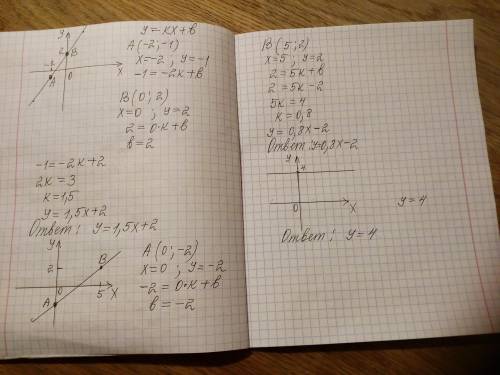 y
2
B
-2
0
X
A
-1
y=кx+в
A(-2;-1)
x=-2; y=-1
-1=-2к+в
B(0;2)
x=0; y=2
2=0·к+в
в=2
-1=-2к+2
2к=3
к=1,5
y=1,5x+2
Ответ: y=1,5x+2
y
2
B
0
5
X
A
A(0;-2)
x=0; y=-2
-2=0·к+в
в=-2
B(5;2)
x=5; y=2
2=5к+в
2=5к-2
5к=4
к=0,8
y=0,8x-2
Ответ: y=0,8x-2
y
4
0
X
y=4
Ответ: y=4